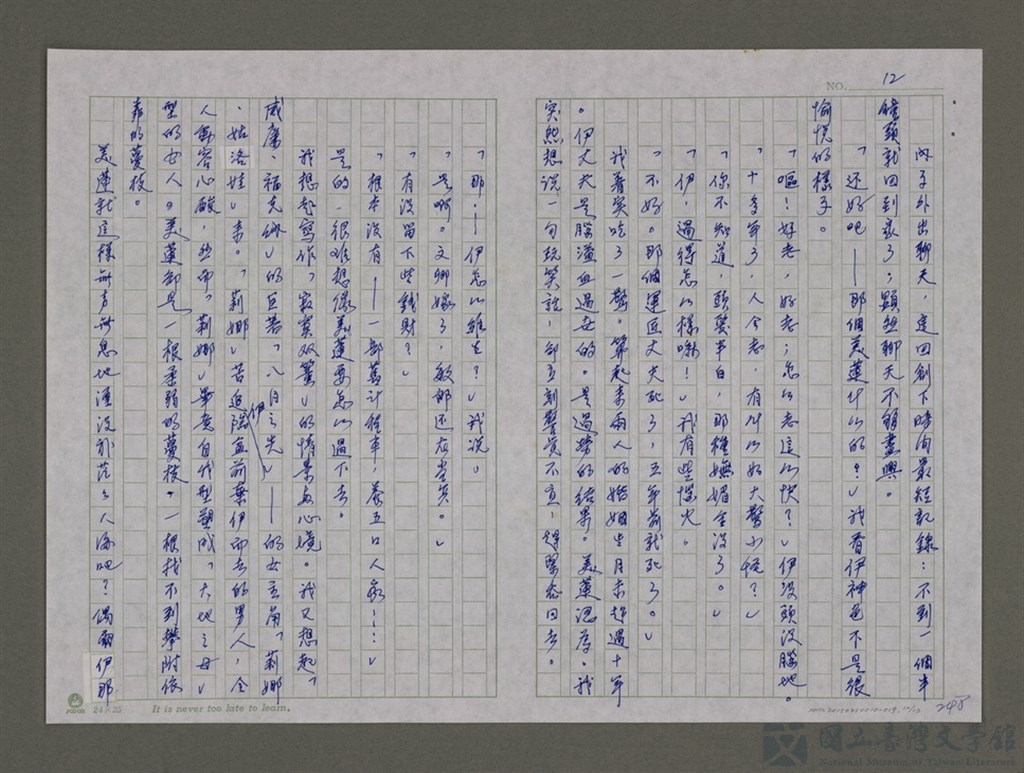 NO. 12
內子外出聊天，這回創下時間最短記錄：不到一個半
鐘頭就回到家了；顯然聊天不夠盡興。
「还好吧——那個美蓮什么的？」我看伊神色不是很
愉悅的樣子。
「嘔！好老，好老；怎么老這么快？」伊沒頭沒腦地。
「十多年了，人会老，有什么好大驚小怪？」
「你不知道，頭髮半白，那種嫵媚全沒了。」
「伊，過得怎么樣嘛！」我有些惱火。
「不好。那個運匠丈夫死了，五年前就死了。」
我著实吃了一驚。算起來兩人的婚姻生月未超過十年
。伊丈夫是腦溢血過世的。是過勞的結果。美蓮認為。我
突然想说一句玩笑話，卻立刻警覺不宜，趕緊忍回去。
「那，——伊怎么維生？」我说。
「是啊。文卿嫁了，敏郎还在当兵。」
「有沒留下些錢財？」
「根本沒有——一部舊計程車，養五口人家！……」
是的，很难想像美蓮要怎么過下去。
我想起寫作「寂寞双簧」的情景与心境。我又想起「
威廉、福克納」的巨著「八月之光」——的女主角「莉娜
、姑洛娃」來。「莉娜」苦追臨盆前棄伊而去的男人，令
伊
人動容心酸，然而「莉娜」畢竟自我型塑成「大地之母」
型的女人。美蓮卻是一根柔弱的蔓枝。一根找不到攀附依
靠的蔓枝。
美蓮就這樣無声無息地湮沒於茫茫人海吧？偶爾伊那
24×25
It is never too late to learn.
248
國立臺灣文學館
National Museum of Taiwan Literature